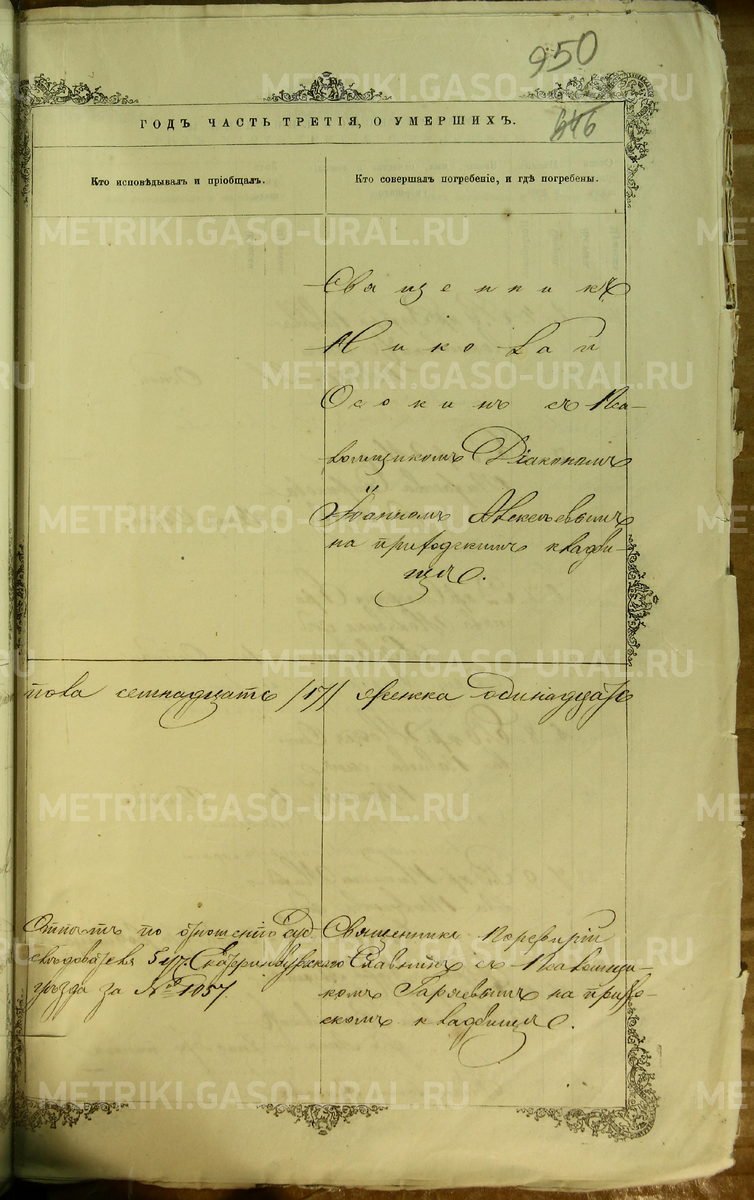 950
646
ГОДЪ ЧАСТЬ ТРЕТІЯ, О УМЕРШИХЪ.
Кто исповѣдывалъ и пріобщалъ.
Кто совершалъ погребеніе, и гдѣ погребены.
Священникъ
Николай
Осокинъ съ Пса-
ломщикомъ Діакономъ
Іоанномъ Алексѣевымъ
на приходскимъ кладби-
щѣ.
пола семнадцать /17/ женска одинадцать
Отпѣтъ по отношенію Суд.
слѣдователя 5 уч. Екатеринбургскаго
уѣзда за № 1057.
Священникъ Порфирій
Славнинъ съ Псаломщи-
комъ Гаряевымъ на прихо-
скомъ кладбищѣ.
METRIKI.GASO-URAL.RU